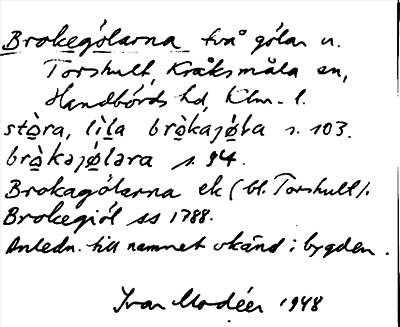 Brokegölarna två gölar n.
Torshult, Kråksmåla sn,
Handbörds hd, Klm. l.
stò̱ra, lìḻa brò̱kajǿ̱la s. 103.
brò̱kajǿ̱lara s. 94.
Brokagölarna ek (bl. Torshult).
Brokegiöl ss 1788.
Anledn. till namnet okänd i bygden.
Ivar Modéer 1948